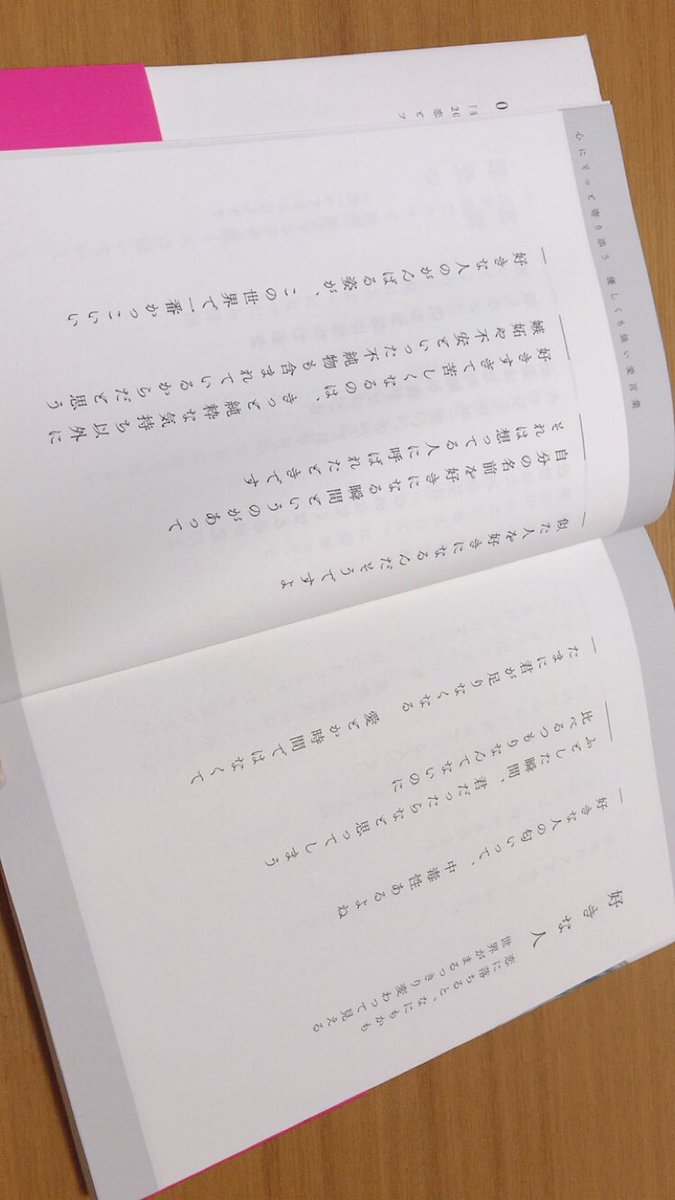 好きな人
恋に落ちると、なにもかも
世界がまるっきり変わって見える
好きな人の匂いって、中毒性あるよね
ふとした瞬間、君だったらなと思ってしまう
比べるつもりなんてないのに
たまに君が足りなくなる　愛とか時間ではなくて
似た人を好きになるんだそうですよ
自分の名前を好きになる瞬間というのがあって
それは想ってる人に呼ばれたときです
好きすぎて苦しくなるのは、きっと純粋な気持ち以外に
嫉妬や不安といった不純物も含まれているからだと思う
好きな人のがんばる姿が、この世界で一番かっこいい
心にそっと寄り添う　優しくも強い愛言葉